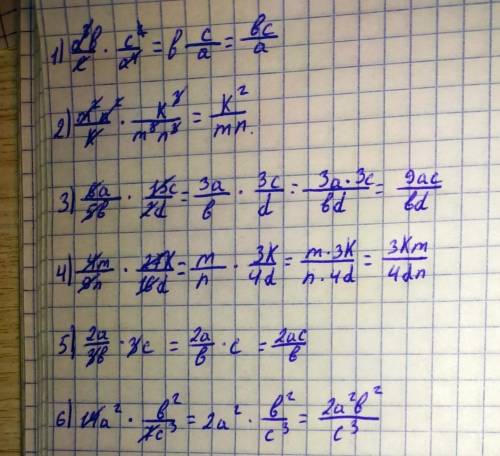 1) a³b/c · c²/a⁴ = b c/a = bc/a
2) m²n²/k · k³/m³n³ = k²/mn.
3) 6a/5b · 15c/2d = 3a/b · 3c/d = 3a·3c/bd = 9ac/bd
4) 4m/9n · 27k/16d = m/n · 3k/4d = m·3k/n·4d = 3km/4dn
5) 2a/3b · 3c = 2a/b · c = 2ac/b
6) 14a² · b²/7c³ = 2a² · b²/c³ = 2a²b²/c³